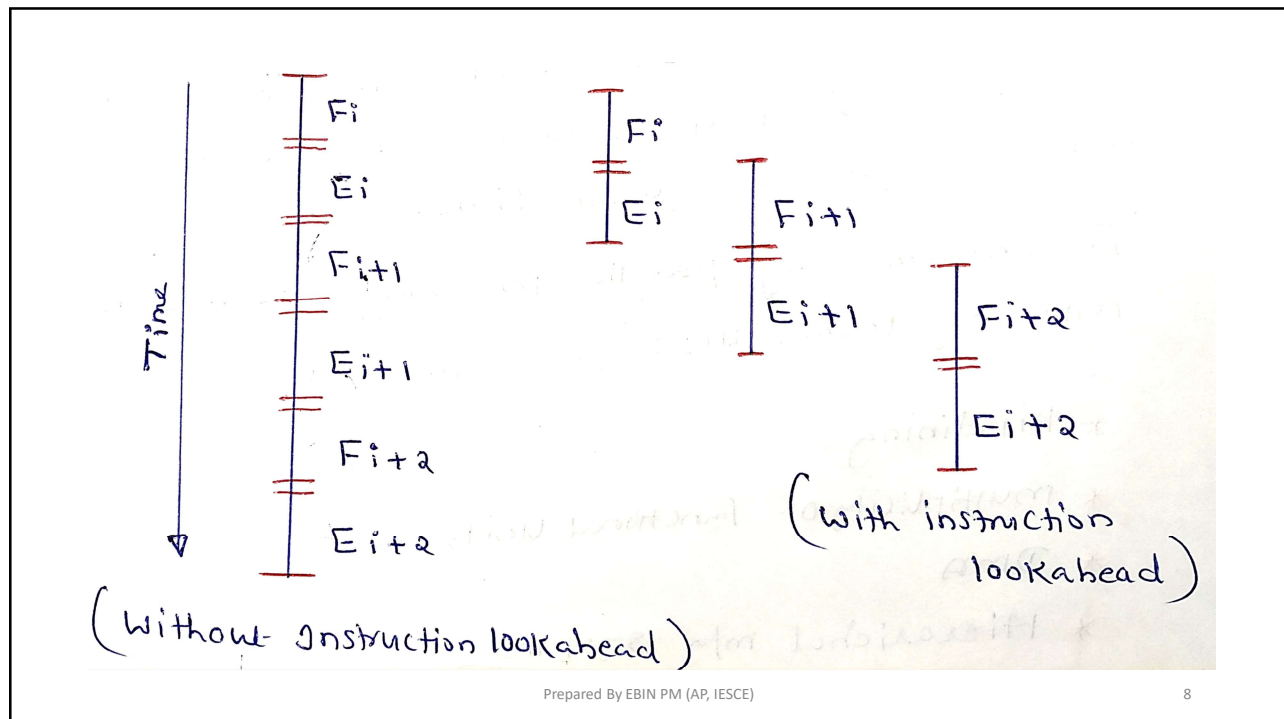 Time
Fi
Ei
Fi+1
Ei+1
Fi+2
Ei+2
(Without Instruction lookahead)
Fi
Ei
Fi+1
Ei+1
Fi+2
Ei+2
(with instruction
lookahead)
Prepared By EBIN PM (AP, IESCE)
8